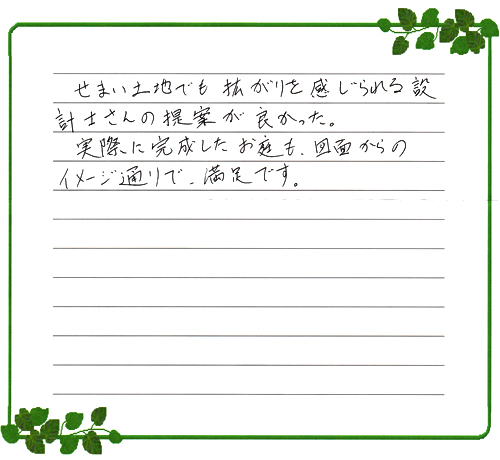 せまい土地でも拡がりを感じられる設
計士さんの提案が良かった。
実際に完成したお庭も、図面からの
イメージ通りで、満足です。